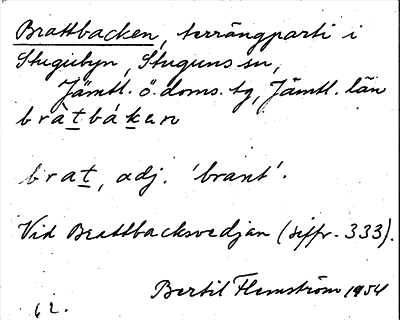 Brattbacken, terrängparti i
Stugubyn, Stuguns sn,
Jämtl. ö. doms. tg, Jämtl. län
bràtbákan
brat, adj. 'brant'.
Vid Brattbacksvedjan (siffr. 333).
Bertil Flemström 1954
62.